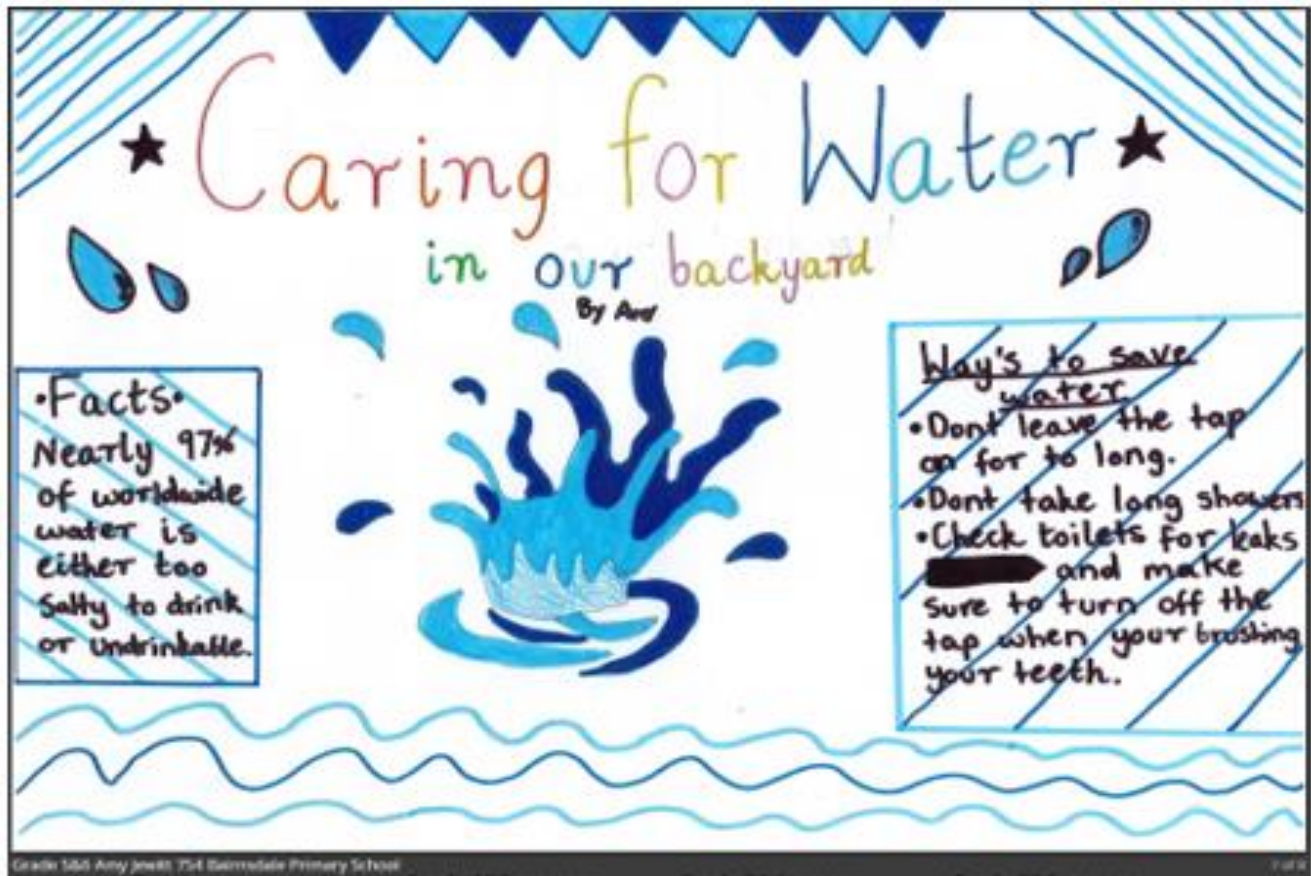 Caring for Water
in our backyard
By
•Facts•
Nearly 97%
of worldwide
water is
either too
salty to drink
or undrinkable.
Way's to save
water
•Dont leave the tap
on for to long.
•Dont take long showers
•Check toilets for leaks
and make
sure to turn off the
tap when your brushing
your teeth.
Grade 5&6 Amy Jewitt 754 Bairnsdale Primary School